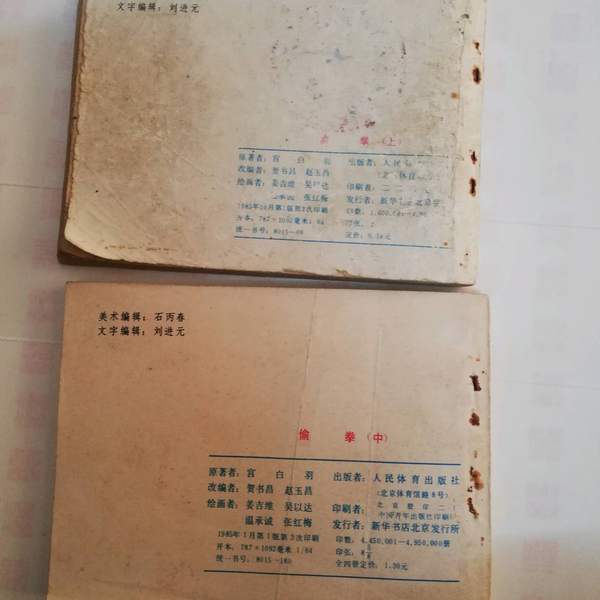 文字编辑：刘进元
拳（上）
原著者：宫 白 羽 出版者：人民
改编者：贺书昌 赵玉昌
绘画者：姜吉维 吴以达 印刷者：
张红梅 发行者：新华 北京
1985年 月第1版第2次印刷
开本：787×1092毫米1/64 印张：2
统一书号：8015—
美术编辑：石丙春
文字编辑：刘进元
偷 拳（中）
原著者：宫 白 羽 出版者：人民体育出版社
改编者：贺书昌 赵玉昌 （北京体育馆路8号）
绘画者：姜吉维 吴以达 印刷者：北京胶印二
温承诚 张红梅 中国青年出版社印刷
1985年1月第1版第3次印刷 发行者：新华书店北京发行所
开本：787×1092毫米 1/64 印数：4,450,001—4,950,000册
统一书号：8015·180 印张：
全四册定价：1.30元